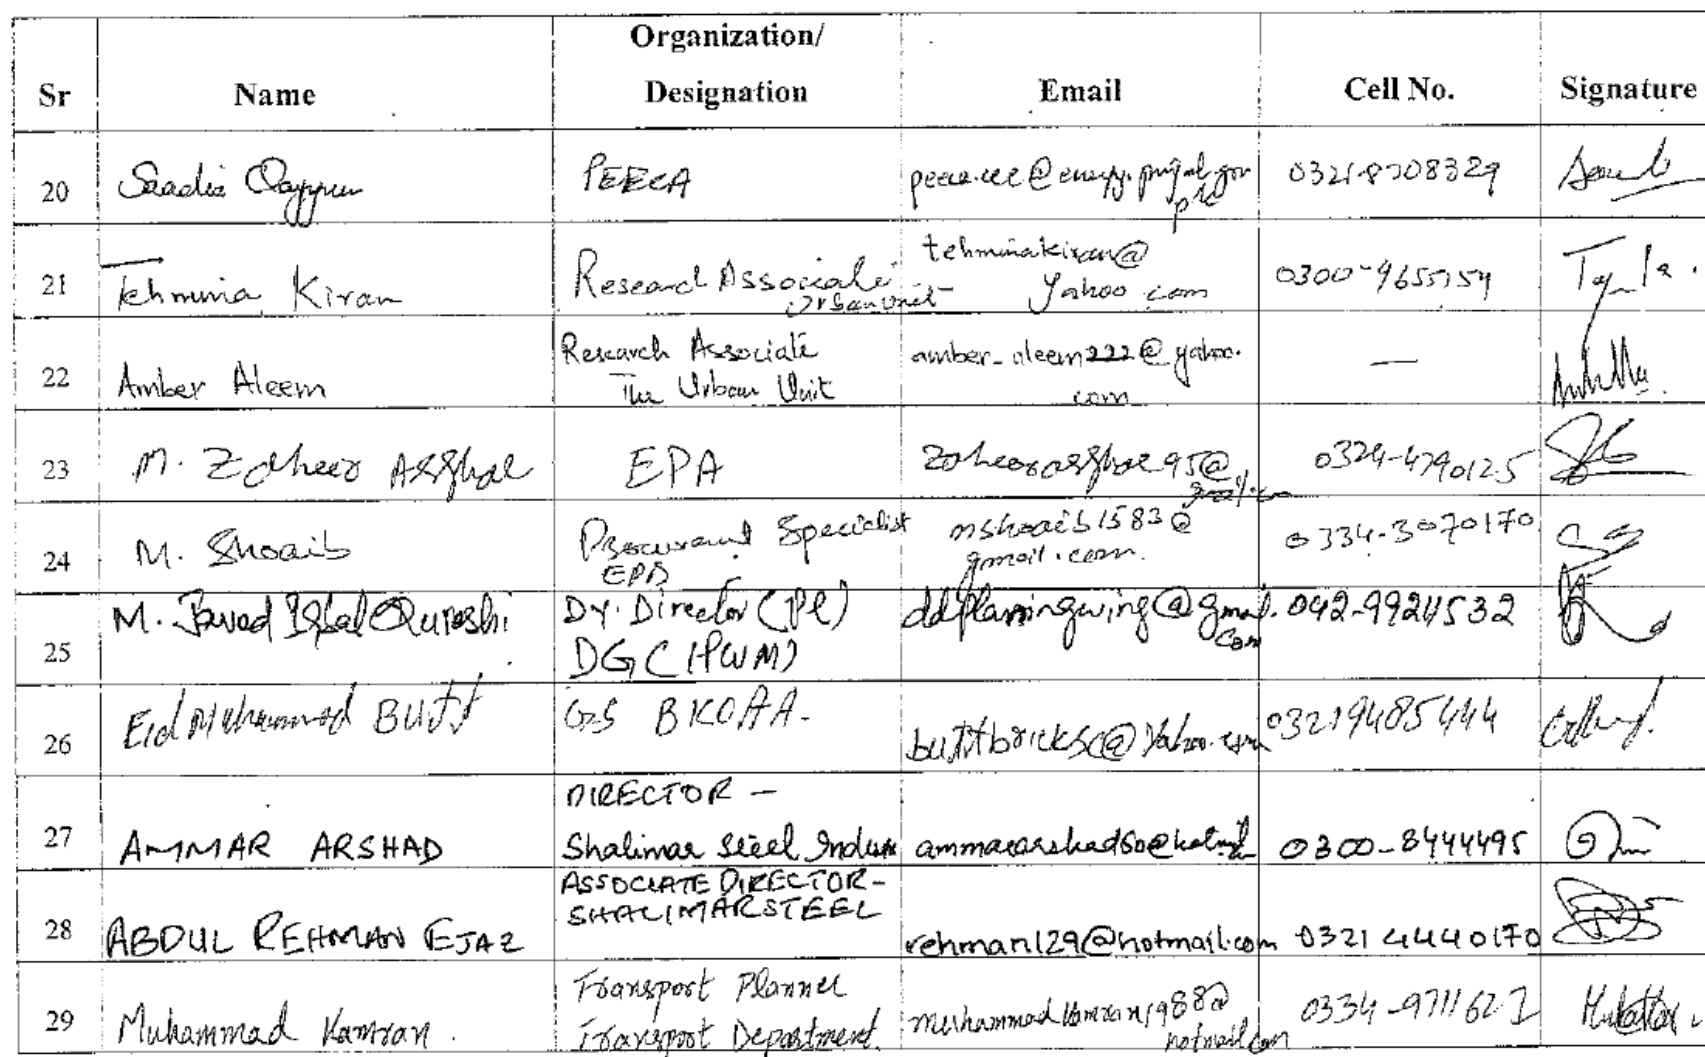 Sr Name Organization/ Designation Email Cell No. Signature
20 Saadia Qayyum PEECA 0321-8708329
21 Tehmina Kiran Research Associate Urban Unit tehminakiran@ Yahoo.com 0300-9655154
22 Amber Aleem Research Associate The Urban Unit amber_aleem222@yahoo.com —
23 M. Zaheer Asghar EPA 0324-4790125
24 M. Shoaib Procurement Specialist EPA mshoaib1583@ gmail.com. 0334-3070170
25 M. Javed Iqbal Qureshi Dy. Director (Pl) ddplanningwing@gmail.com
26 Eid Muhammad Butt GS BKOAA. buttbricksc@Yahoo.com 03219485444
27 AMMAR ARSHAD DIRECTOR – Shalimar Steel 0300-8444495
28 ABDUL REHMAN EJAZ ASSOCIATE DIRECTOR- SHALIMAR STEEL rehman129@hotmail.com 0321 4440170
29 Muhammad Kamran. Transport Planner Transport Department. muhammadkamran1988@ hotmail.com